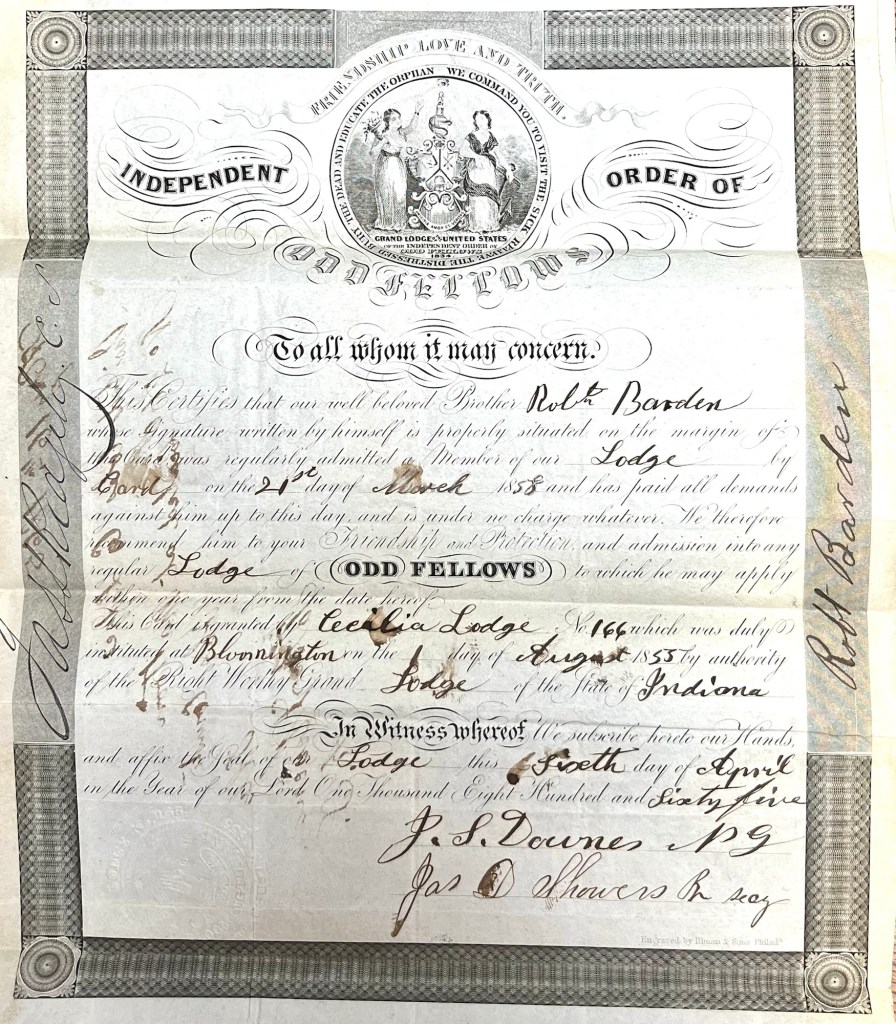 FRIENDSHIP LOVE AND TRUTH.
WE COMMAND YOU TO VISIT THE SICK RELIEVE THE DISTRESSED BURY THE DEAD AND EDUCATE THE ORPHAN
INDEPENDENT ORDER OF
GRAND LODGE OF THE UNITED STATES
OF THE INDEPENDENT ORDER OF
ODD FELLOWS
ODD FELLOWS
To all whom it may concern.
This Certifies that our well beloved Brother Robt Barden
whose signature written by himself is properly situated on the margin of
this Card was regularly admitted a Member of our Lodge by
Card on the 21st day of March 1858 and has paid all demands
against him up to this day, and is under no charge whatever. We therefore
recommend him to your Friendship and Protection, and admission into any
regular Lodge of ODD FELLOWS to which he may apply
within one year from the date hereof
This Card is granted by Cecilia Lodge No. 166 which was duly
instituted at Bloomington on the 1 day of August 1855 by authority
of the Right Worthy Grand Lodge of the State of Indiana
In Witness whereof, We subscribe hereto our Hands,
and affix the Seal of our Lodge this Sixth day of April
in the Year of our Lord One Thousand Eight Hundred and Sixty five
J. S. Downes N G
Jas D Showers Pr secy
Robt Barden